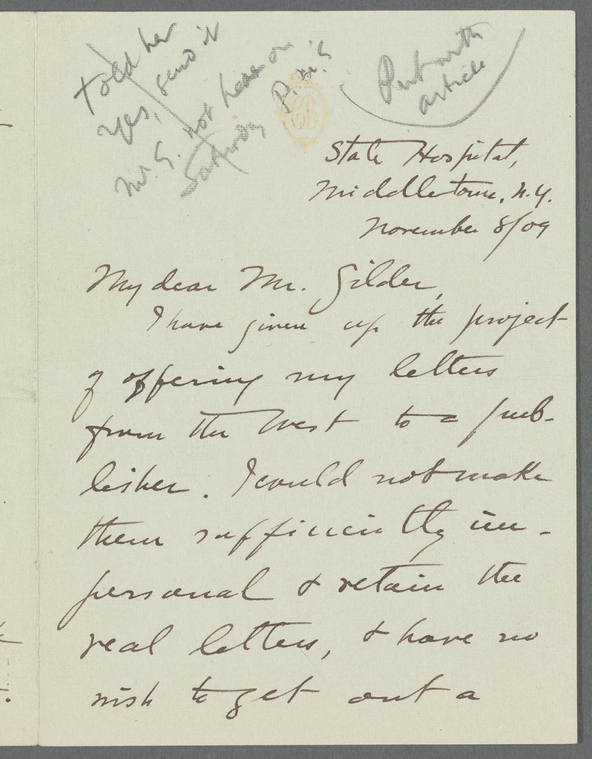 Told her
Yes, send it
Mr. G. not here on
Saturday P.M.s
Put with
article
State Hospital,
Middletown, N.Y.
November 8/09
My dear Mr. Gilder,
I have given up the project
of offering my letters
from the West to a pub-
lisher. I could not make
them sufficiently im-
personal & retain the
real letters, & have no
wish to get out a